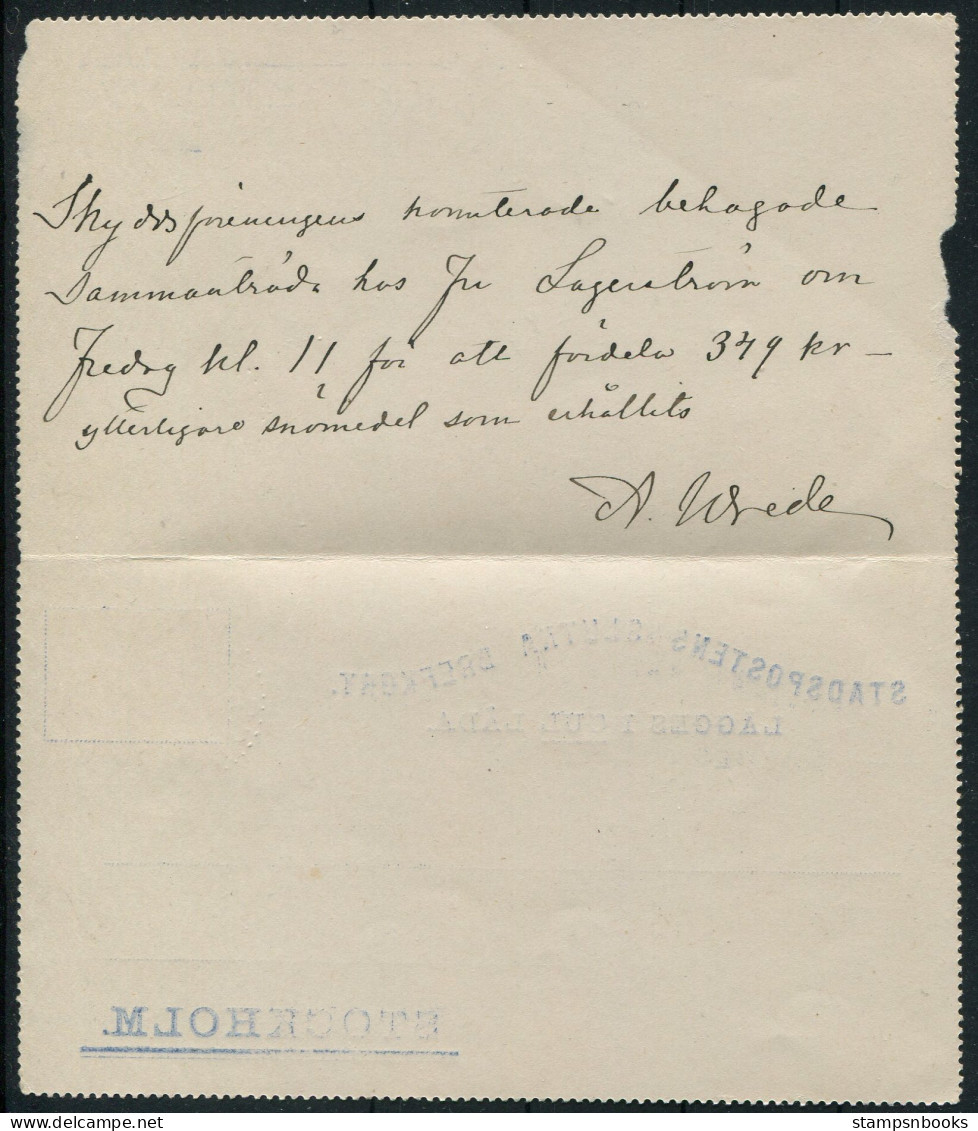 Skyddsföreningens komiterade behagade
sammanträda hos Fru Lagerström om
Fredag kl. 11 för att fördela 379 kr
ytterligare snömedel som erhållits
A. Wrede
STADSPOSTENS SLUTNA BREFKORT.
LÄGGES I GUL LÅDA
STOCKHOLM.
stampsnbooks